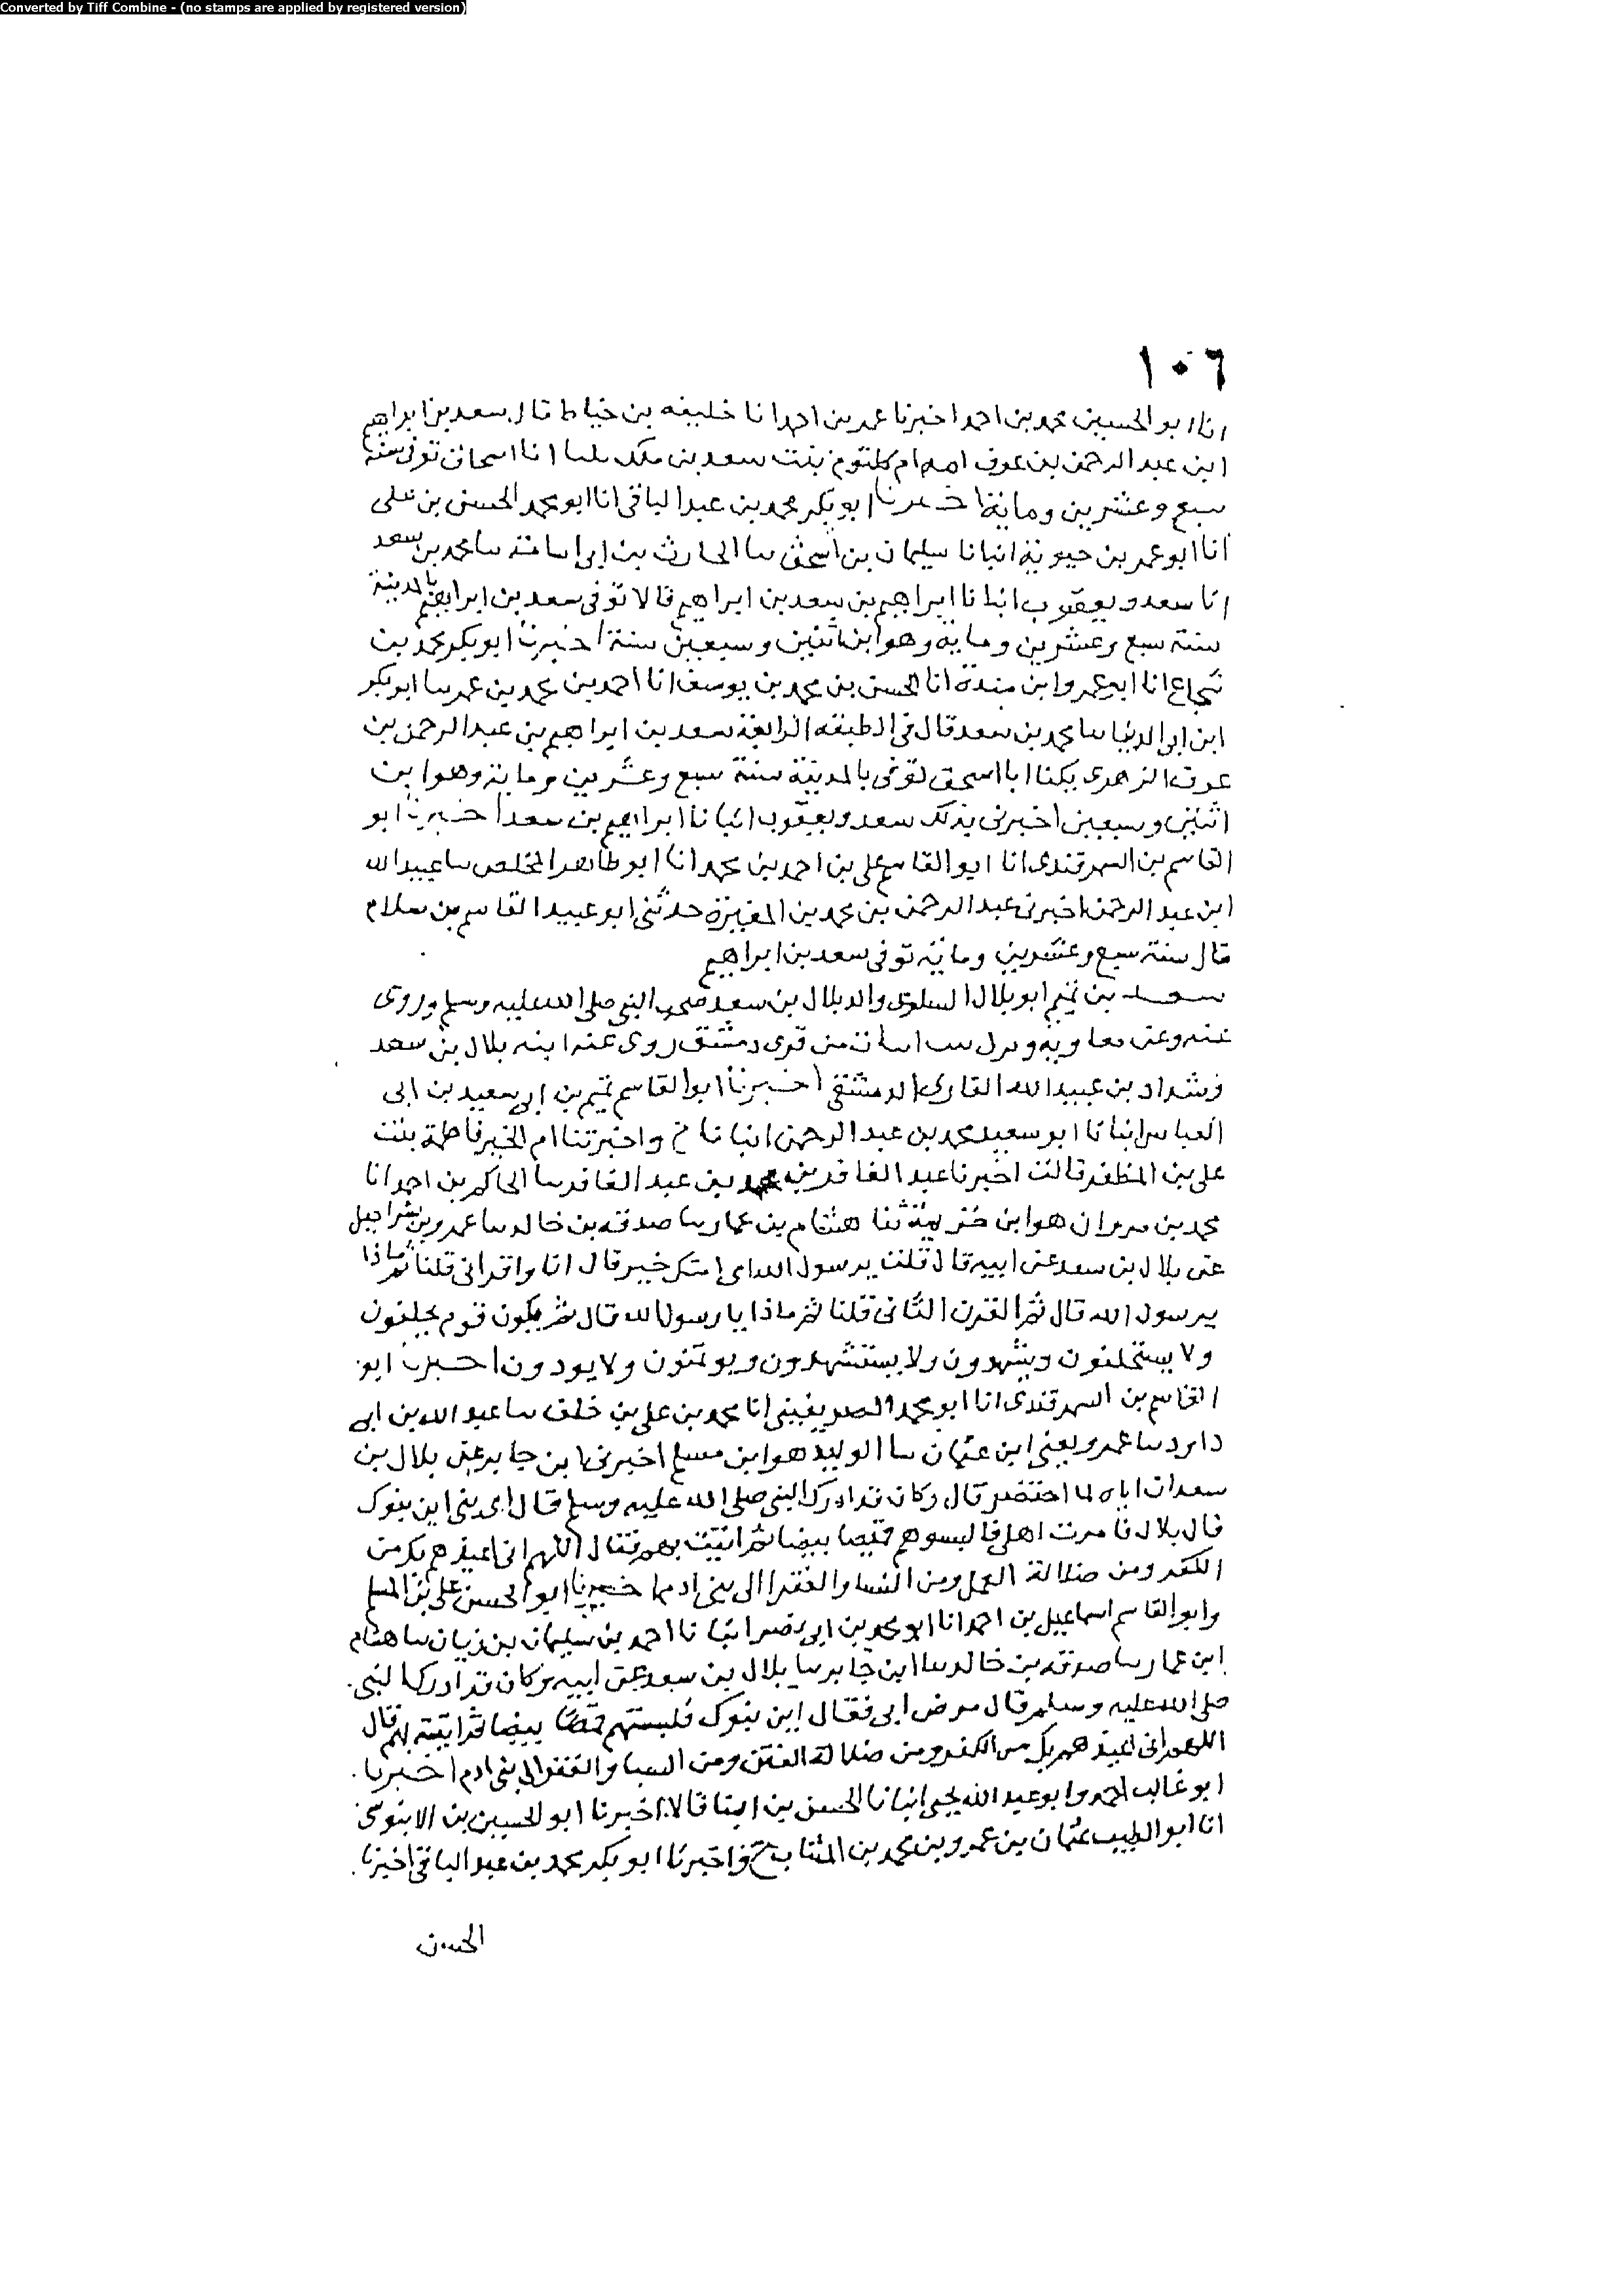 Converted by Tiff Combine - (no stamps are applied by registered version)
١٠٦
انا ابو الحسين محمد بن احمد اخبرنا عمر بن احمد انا خليفه بن خياط قال سعد بن ابراهيم
ابن عبد الرحمن بن عوف امه ام كلثوم بنت سعد بن ملك انا اسحاق توفى سنة
سبع وعشرين ومائة اخبرنا ابو بكر محمد بن عبد الباقى انا ابو محمد الحسن بن على
انا ابو عمر بن حيوية انبانا سليمان بن اسحق سا الحارث بن ابى اسامة سا محمد بن سعد
انا سعد ويعقوب ابنا ابراهيم بن سعد بن ابراهيم قالا توفى سعد بن ابراهيم بالمدينة
سنة سبع وعشرين ومايه وهو ابن اثنين وسبعين سنة اخبرنا ابو بكر محمد بن
شجاع انا ابو عمرو ابن مندة انا الحسن بن محمد بن يوسف انا احمد بن محمد بن عمر سا ابو بكر
ابن ابى الدنيا سا محمد بن سعد قال فى الطبقه الرابعة سعد بن ابراهيم بن عبد الرحمن بن
عوف الزهرى يكنا ابا اسحق توفى بالمدينة سنة سبع وعشرين وماية وهو ابن
اثنين وسبعين اخبرنى بذلك سعد ويعقوب انبانا ابراهيم بن سعد اخبرنا ابو
القاسم بن السمرقندى انا ابو القاسم على بن احمد بن محمد انا ابو طاهر المخلص سا عبيد الله
ابن عبد الرحمن اخبرنى عبد الرحمن بن محمد بن المغيرة حدثنى ابو عبيد القاسم بن سلام
قال سنة سبع وعشرين ومائة توفى سعد بن ابراهيم
سعد بن تميم ابو بلال السلونى والد بلال بن سعد صحب النبى صلى الله عليه وسلم وروى
عنه وعن معاويه ونزل من قرى دمشق روى عنه ابنه بلال بن سعد
وشداد بن عبيد الله القارى الدمشقى اخبرنا ابو القاسم تميم بن ابى سعيد بن ابى
العباس انبانا ابو سعيد محمد بن عبد الرحمن انبانا ح واخبرتنا ام الخير فاطمة بنت
على بن المظفر قالت اخبرنا عبد الغافر بن محمد بن عبد الغافر سا الحاكم بن احمد انا
محمد بن مروان هو ابن خزيمة ثنا هشام بن عمار سا صدقه بن خالد سا عمرو بن شراحيل
عن بلال بن سعد عن ابيه قال قلت يرسول الله اى امتك خير قال انا واقرانى قلنا ثم ماذا
يرسول الله قال ثم القرن الثانى قلنا ثم ماذا يا رسول الله قال ثم يكون قوم يحلفون
ولا يستحلفون ويشهدون ولا يستشهدون ويوتمنون ولا يودون اخبرنا ابو
القاسم بن السمرقندى انا ابو محمد الصريفينى انا محمد بن على بن خلف سا عبد الله بن ابى
داود سا عمرو يعنى ابن عثمان سا الوليد هو ابن مسلم اخبرنى ابن جابر عن بلال بن
سعد ان اباه لما احتضر قال وكان قد ادرك النبى صلى الله عليه وسلم قال اى بنى اين بنوك
قال بلال فامرت اهلى فالبسوهم قميصا بيضا ثم اتيت بهم فقال اللهم انى اعيذهم بك من
الكفر ومن ضلالة العمل ومن السبا والفقر الى بنى ادم اخبرنا ابو الحسن على بن المسلم
وابو القاسم اسماعيل بن احمد انا ابو محمد بن ابى نصر انبانا احمد بن سليمان بن زبان سا هشام
ابن عمار سا صدقه بن خالد سا ابن جابر سا بلال بن سعد عن ابيه وكان قد ادرك النبى
صلى الله عليه وسلم قال مرض ابى فقال اين بنوك فلبستهم قمصا بيضا ثم اتيته بهم قال
اللهم انى اعيذهم بك من الكفر ومن ضلالة الفتن ومن السبا والفقر الى بنى ادم اخبرنا
ابو غالب احمد وابو عبد الله يحيى انبانا الحسن بن البنا قالا اخبرنا ابو الحسين بن الابنوسى
انا ابو الطيب عثمان بن عمرو بن محمد بن المنتاب ح واخبرنا ابو بكر محمد بن عبد الباقى اخبرنا
الحسن